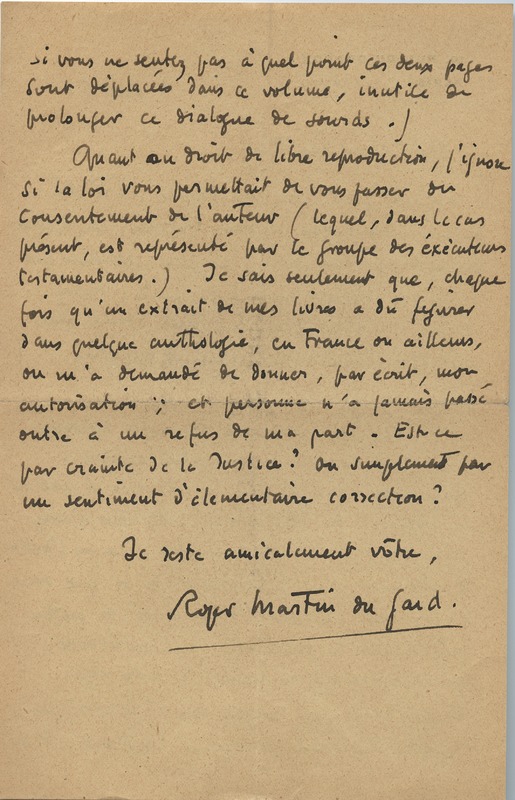 si vous ne sentez pas à quel point ces deux pages
sont déplacées dans ce volume, inutile de
prolonger ce dialogue de sourds.)
Quant au droit de libre reproduction, j'ignore
si la loi vous permettait de vous passer du
consentement de l'auteur (lequel, dans le cas
présent, est représenté par le groupe des exécuteurs
testamentaires.) Je sais seulement que, chaque
fois qu'un extrait de mes livres a dû figurer
dans quelque anthologie, en France ou ailleurs,
on m'a demandé de donner, par écrit, mon
autorisation ; et personne n'a jamais passé
outre à un refus de ma part. Est-ce
par crainte de la Justice? Ou simplement par
un sentiment d'élémentaire correction?
Je reste amicalement vôtre,
Roger Martin du Gard.